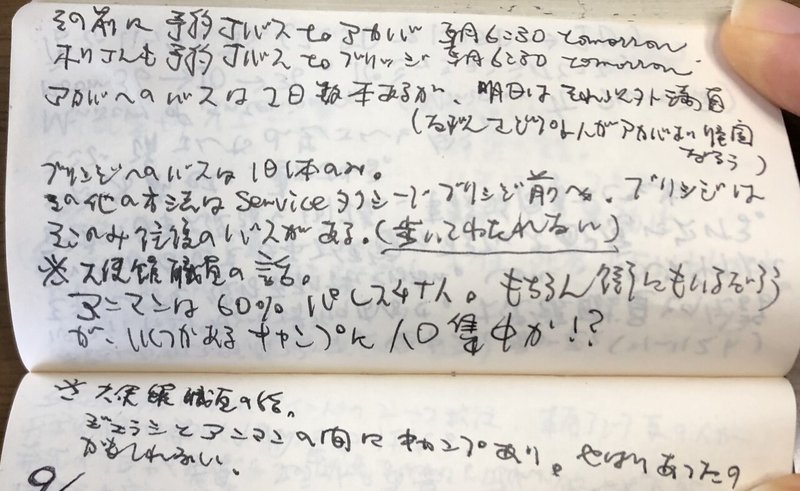 その前に 予約 Jバス to アカバ 朝6:30 tomorrow
ホリさんも 予約 Jバス to ブリッジ 朝6:30 tomorrow.
アカバへのバスは1日数本あるが、明日はそれ以外満員
(なぜ アカバより帰国
だろう)
ブリッジへのバスは1日1本のみ。
その他の方法はServiceタクシーでブリッジ前へ。ブリッジは
そこのみ往復のバスがある。(歩いてわたれない)
※大使館職員の話。
アンマンは60%パレスチナ人。もちろん にもいるだろう
が、いくつかあるキャンプに人口集中か!?
※大使館職員の話。
ジェラシとアンマンの間にキャンプあり。やはりあったの
かもしれない。
9/